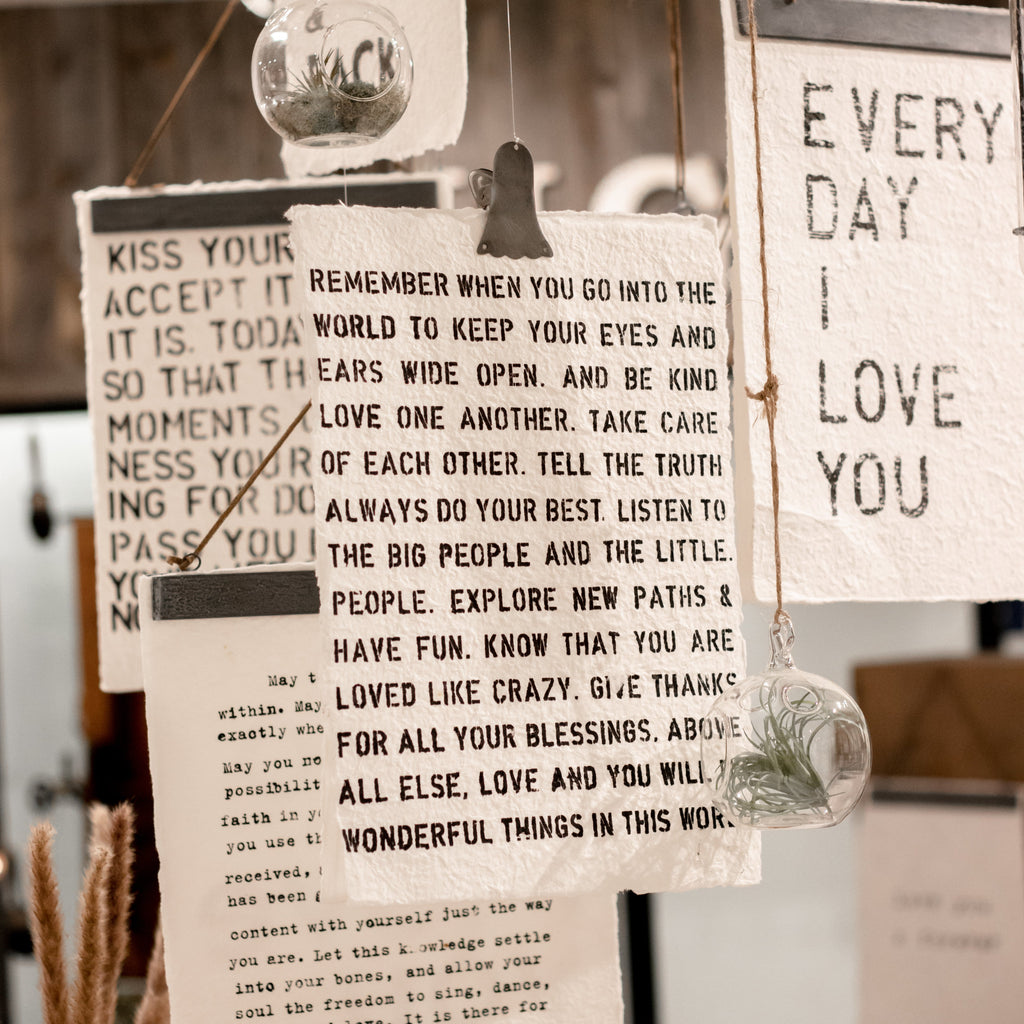 ACK
KISS YOUR
ACCEPT IT
IT IS. TODA
SO THAT TH
MOMENTS
NESS YOUR
ING FOR DO
PASS YOU
YO
NO
REMEMBER WHEN YOU GO INTO THE
WORLD TO KEEP YOUR EYES AND
EARS WIDE OPEN. AND BE KIND
LOVE ONE ANOTHER. TAKE CARE
OF EACH OTHER. TELL THE TRUTH
ALWAYS DO YOUR BEST. LISTEN TO
THE BIG PEOPLE AND THE LITTLE.
PEOPLE. EXPLORE NEW PATHS &
HAVE FUN. KNOW THAT YOU ARE
LOVED LIKE CRAZY. GIVE THANKS
FOR ALL YOUR BLESSINGS. ABOVE
ALL ELSE, LOVE AND YOU WILL
WONDERFUL THINGS IN THIS WOR
EVERY
DAY
I
LOVE
YOU
May t
within. May
exactly whe
May you no
possibilit
faith in yo
you use th
received,
has been g
content with yourself just the way
you are. Let this knowledge settle
into your bones, and allow your
soul the freedom to sing, dance,
love. It is there for